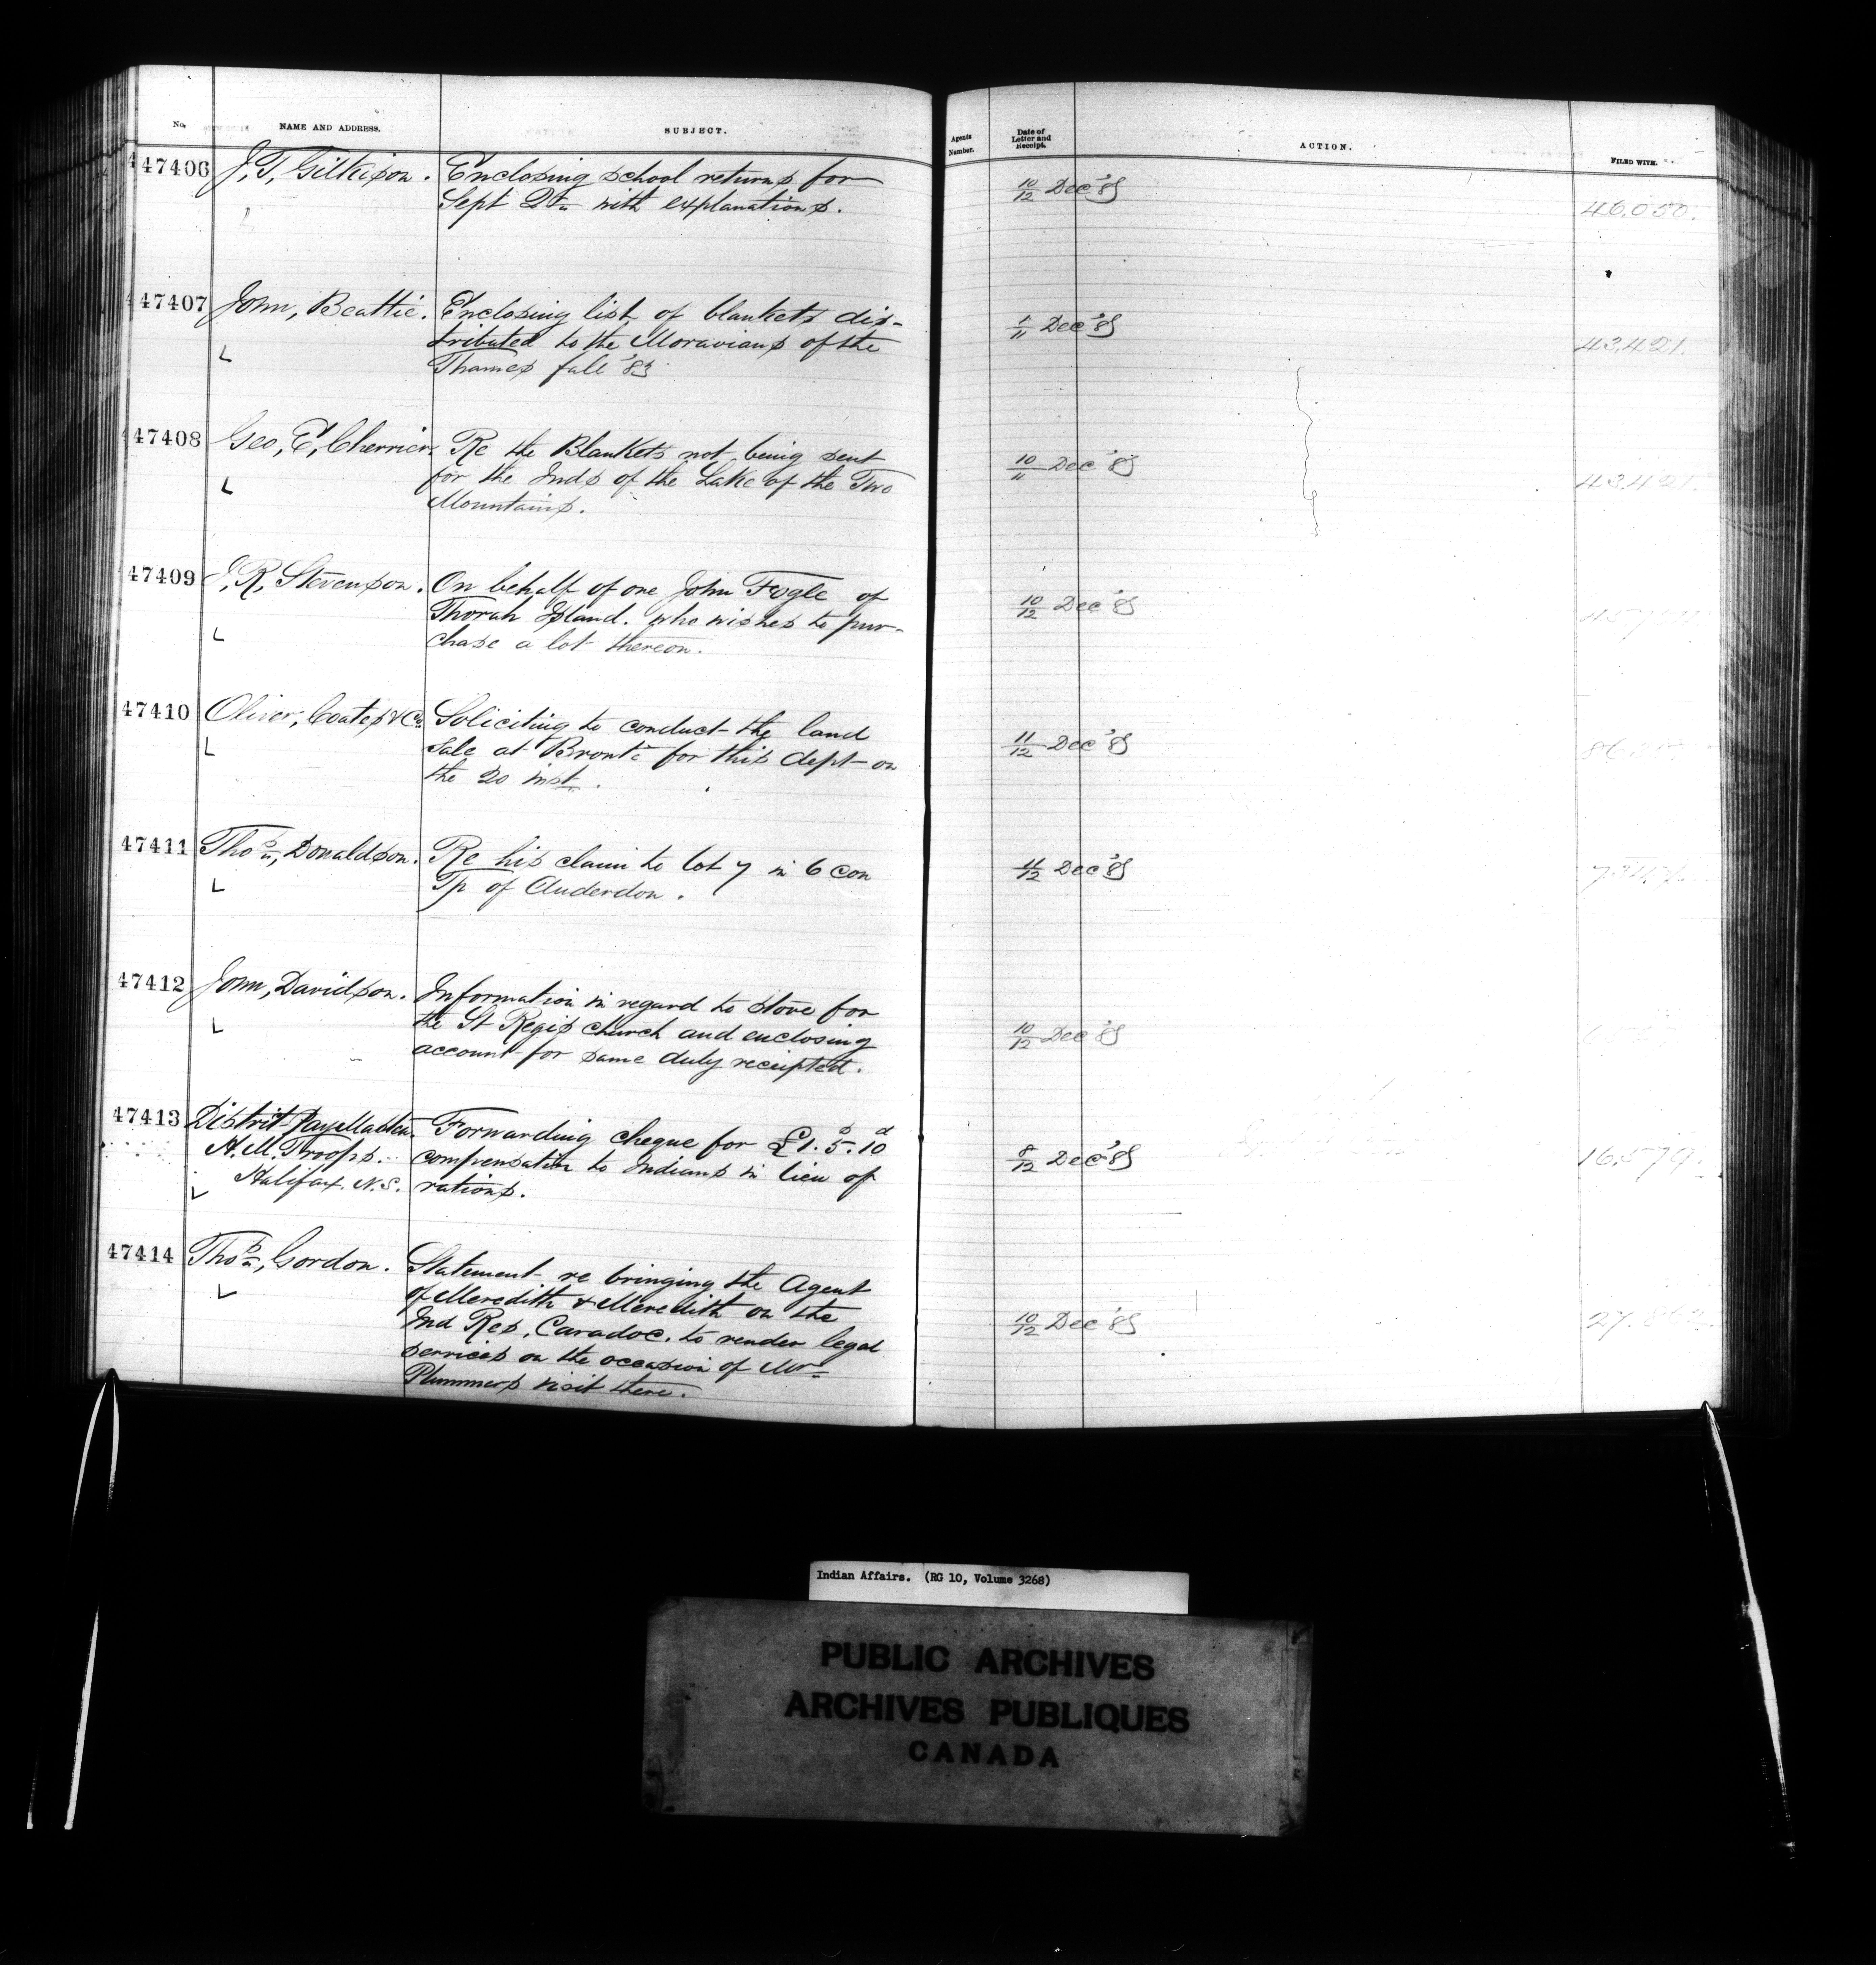 No. NAME AND ADDRESS. SUBJECT. Agents Number. Date of Letter and Receipt. ACTION. FILED WITH.
47406 J, T, Gilkison. Enclosing school returns for
Sept Qtr with explanations. 10/12 Dec '83 46.050.
47407 John, Beattie. Enclosing list of blankets dis-
tributed to the Moravians of the 1/11 Dec '83 43.421.
Thames fall '83
47408 Geo, E, Cherrier. Re the Blankets not being sent
for the Inds of the Lake of the Two 10/11 Dec '83 43421.
Mountains.
47409 J, R, Stevenson. On behalf of one John Fogle of
Thorah Island. who wishes to pur- 10/12 Dec '83
chase a lot thereon.
47410 Oliver, Coates & Co. Soliciting to conduct the land
sale at Bronte for this dept on 11/12 Dec '83
the 20 inst.
47411 Thos, Donaldson. Re his claim to lot 7 in 6 con
Tp of Anderdon. 11/12 Dec '83
47412 John, Davidson. Information in regard to stove for
the St Regis church and enclosing 10/12 Dec '83
account for same duly receipted.
47413 District PayMaster. Forwarding cheque for £1. 5s. 10d
H. M. Troops. compensation to Indians in lieu of 8/12 Dec '83 16,579.
Halifax. N.S. rations.
47414 Thos, Gordon. Statement re bringing the Agent
of Meredith & Meredith on the
Ind Res, Caradoc. to render legal 10/12 Dec '83
services on the occasion of Mr
Plummers visit there.
Indian Affairs. (RG 10, Volume 3268)
PUBLIC ARCHIVES
ARCHIVES PUBLIQUES
CANADA